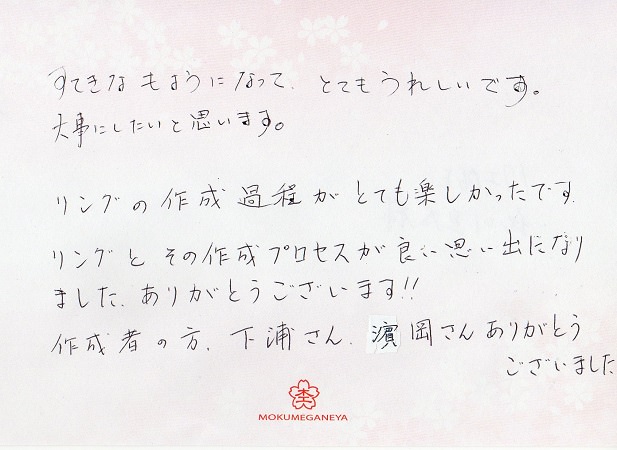 すてきなもようになって、とてもうれしいです。
大事にしたいと思います。
リングの作成過程がとても楽しかったです
リングとその作成プロセスが良い思い出になり
ました、ありがとうございます!!
作成者の方、下浦さん、濱岡さんありがとう
ございました
杢
MOKUMEGANEYA